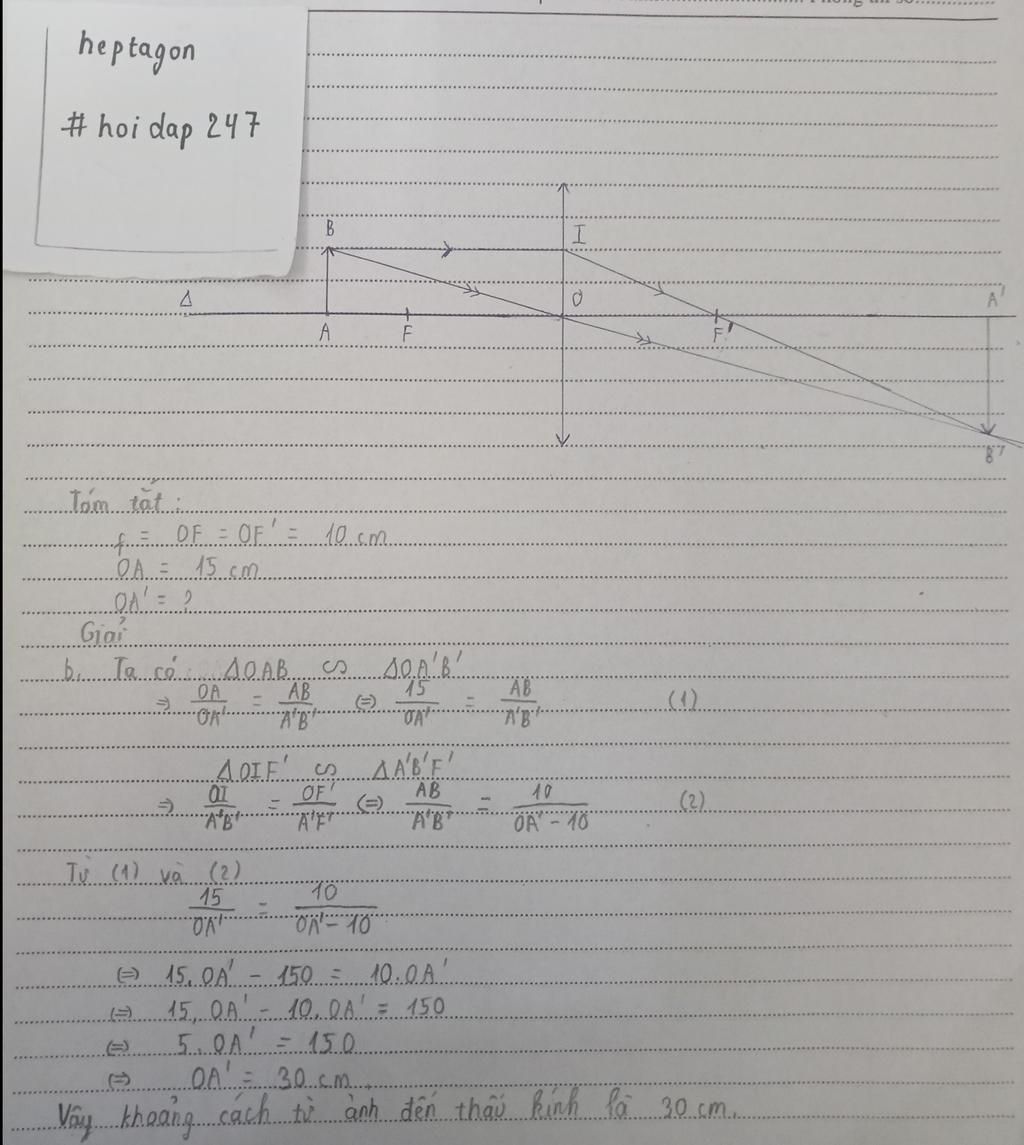 heptagon
# hoi dap 247
B
I
Δ
O
A'
A
F
F'
B'
Tóm tắt:
f = OF = OF' = 10 cm
OA = 15 cm
OA' = ?
Giải
b. Ta có: ΔOAB ∽ ΔOA'B'
⇒ OA/OA' = AB/A'B' ⇔ 15/OA' = AB/A'B' (1)
ΔOIF' ∽ ΔA'B'F'
⇒ OI/A'B' = OF'/A'F' ⇔ AB/A'B' = 10/OA' - 10 (2)
Từ (1) và (2)
15/OA' = 10/OA' - 10
⇔ 15.OA' - 150 = 10.OA'
⇔ 15.OA' - 10.OA' = 150
⇔ 5.OA' = 150
⇔ OA' = 30 cm.
Vậy khoảng cách từ ảnh đến thấu kính là 30 cm.